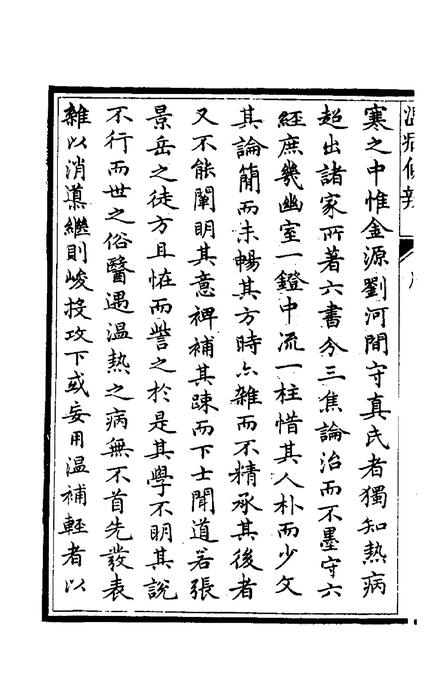 溫病條辨
序
寒之中惟金源劉河間守真氏者獨知熱病
超出諸家所著六書分三焦論治而不墨守六
經庶幾幽室一鐙中流一柱惜其人朴而少文
其論簡而未暢其方時亦雜而不精承其後者
又不能闡明其意裨補其疎而下士聞道若張
景岳之徒方且怪而訾之於是其學不明其說
不行而世之俗醫遇溫熱之病無不首先發表
雜以消導繼則峻投攻下或妄用溫補輕者以